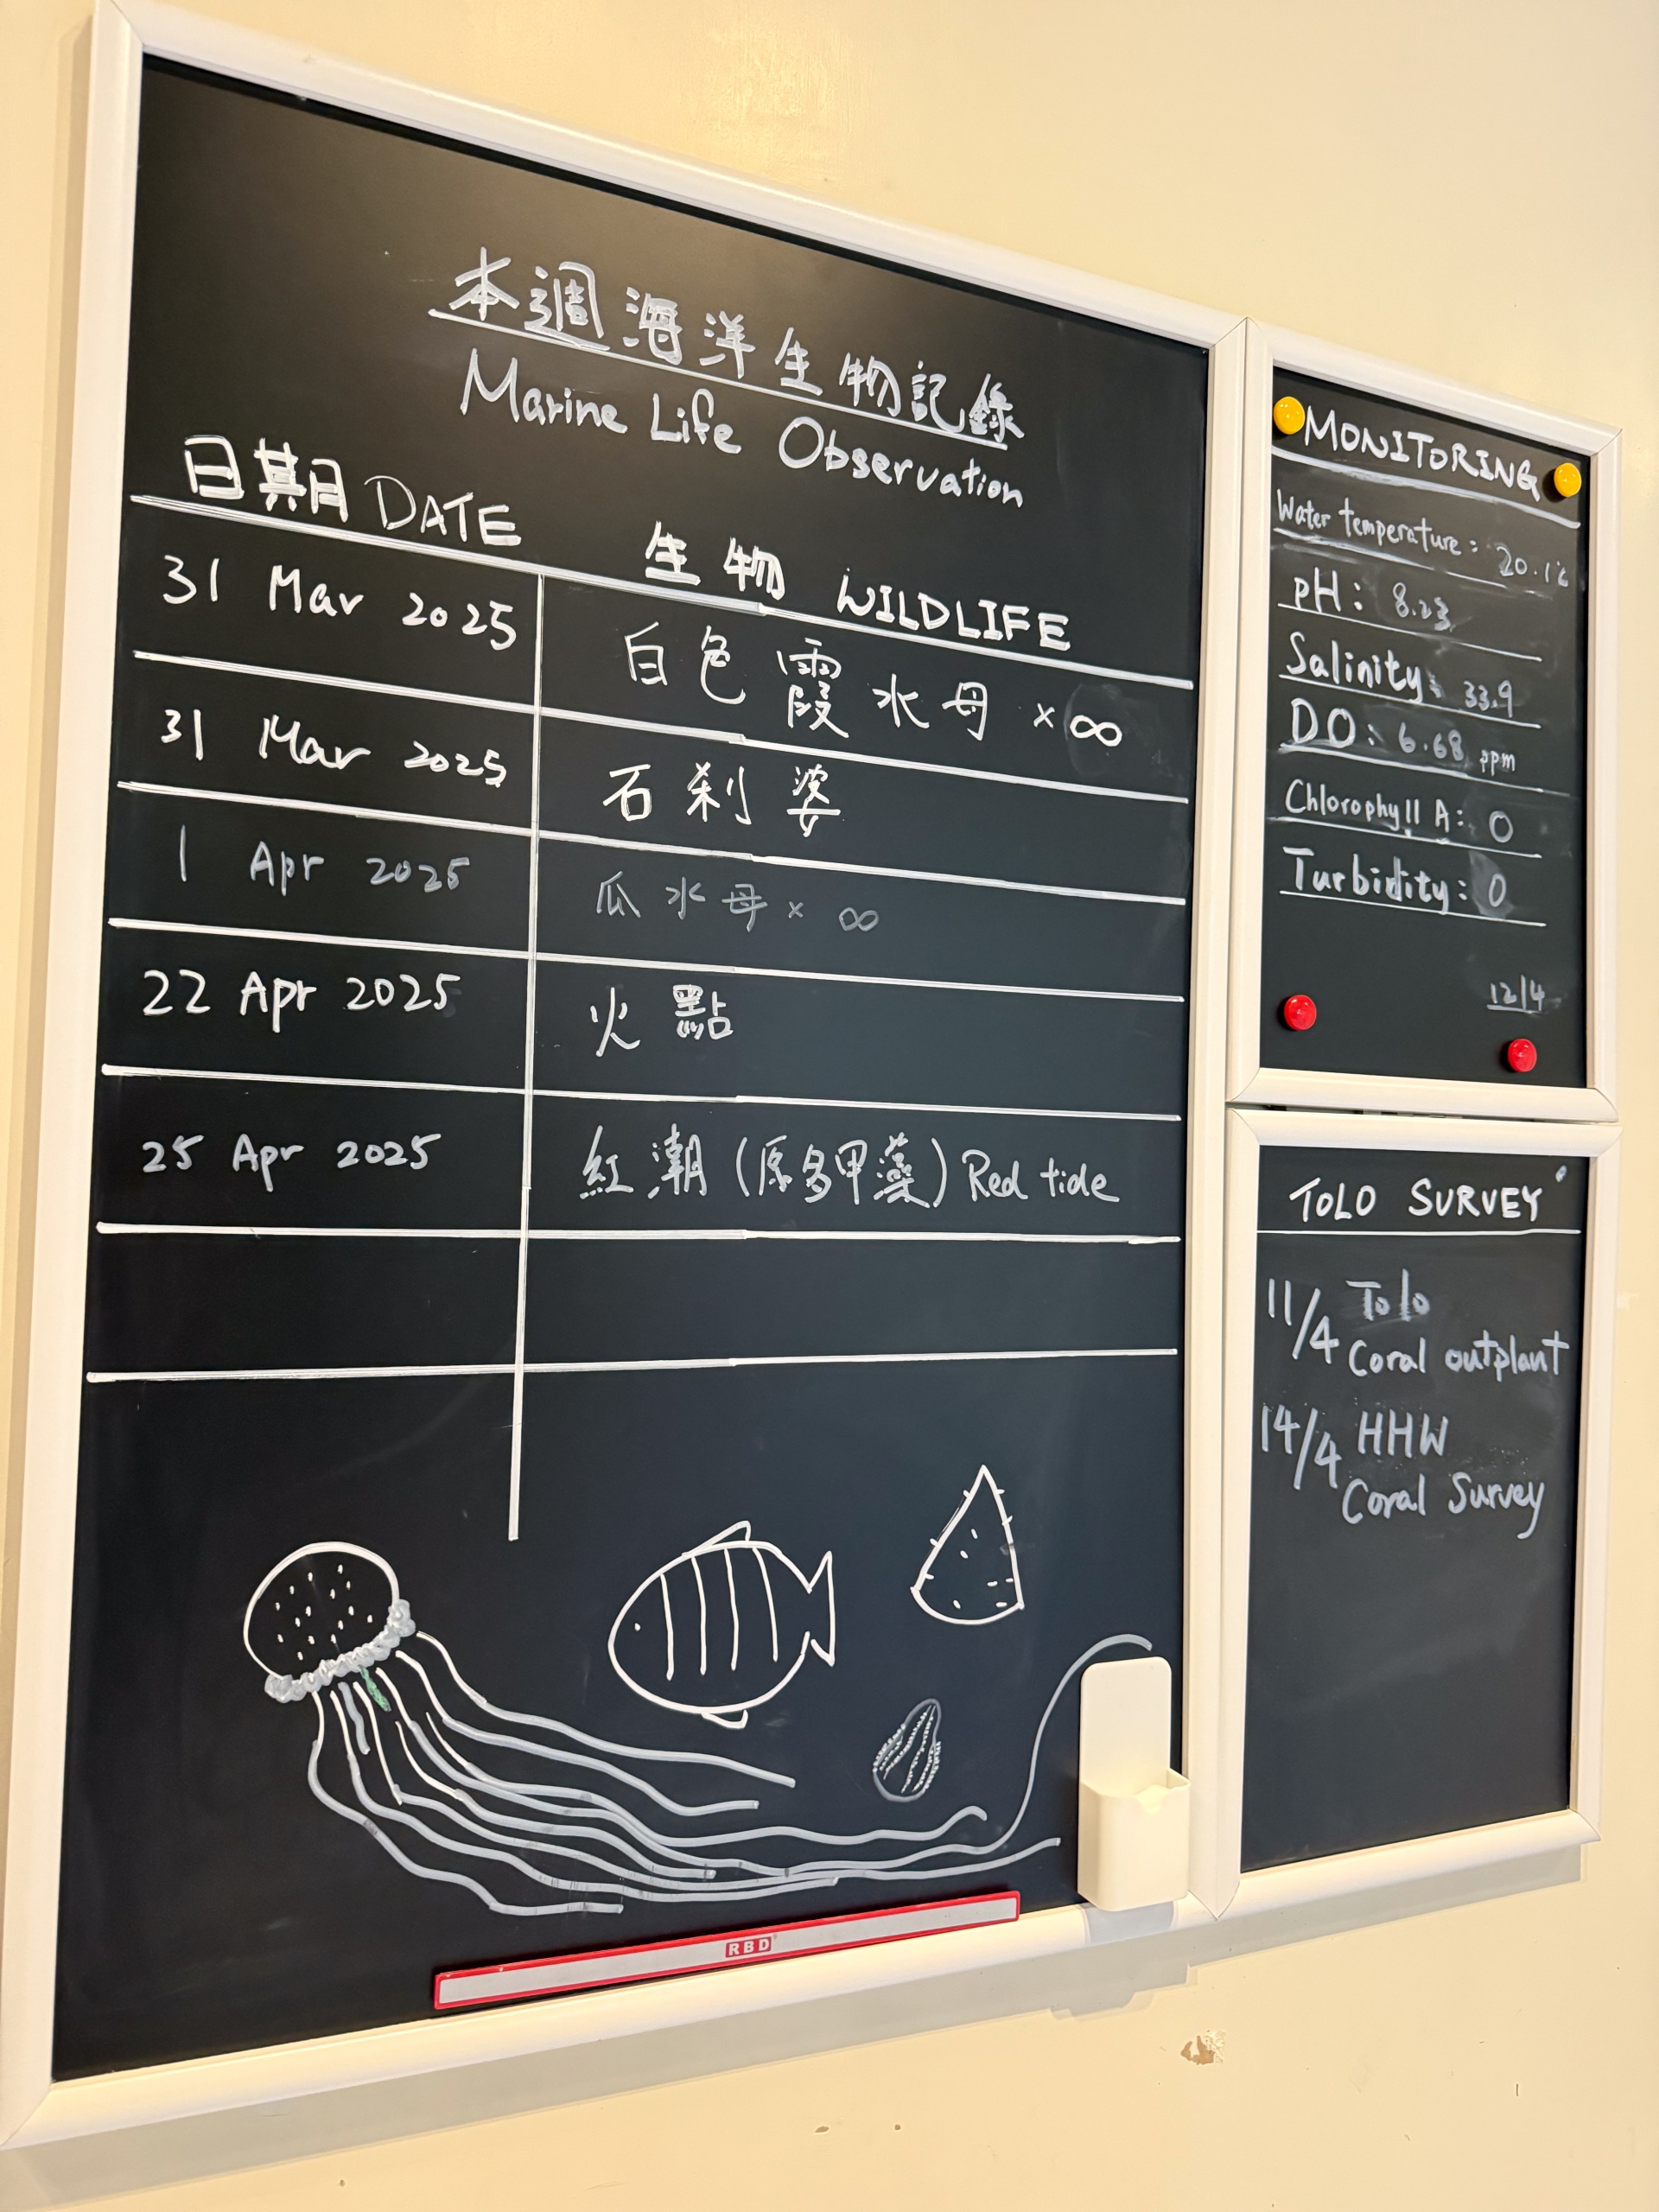 本週海洋生物記錄
Marine Life Observation
日期 DATE 生物 WILDLIFE
31 Mar 2025 白色霞水母 × ∞
31 Mar 2025 石剎婆
1 Apr 2025 瓜水母 × ∞
22 Apr 2025 火點
25 Apr 2025 紅潮 (原多甲藻) Red tide
RBD
MONITORING
Water temperature: 20.1℃
pH: 8.23
Salinity: 33.9
DO: 6.68 ppm
Chlorophyll A: 0
Turbidity: 0
12/4
TOLO SURVEY
11/4 Tolo
Coral outplant
14/4 HHW
Coral Survey